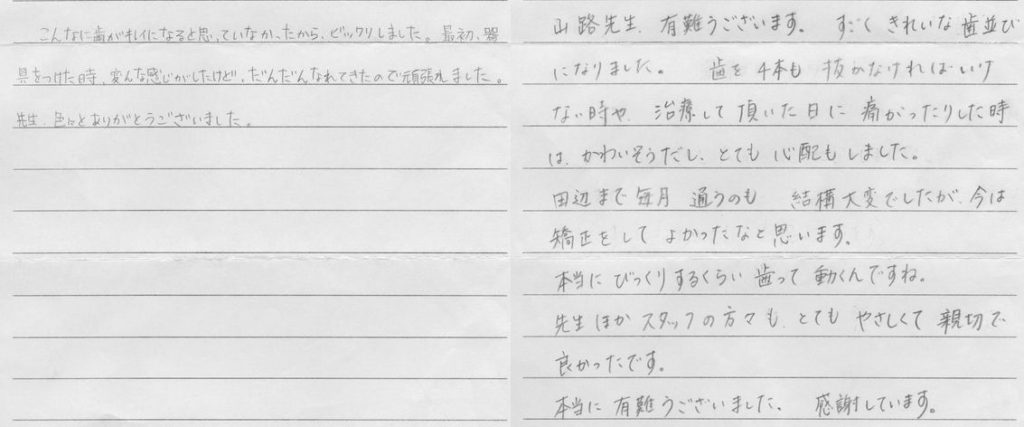 こんなに歯がキレイになると思っていなかったから、ビックリしました。最初、器
具をつけた時、変んな感じがしたけど、だんだんなれてきたので頑張れました。
先生、色々とありがとうございました。
山路先生、有難うございます。 すごく きれいな 歯並び
になりました。 歯を 4本も 抜かなければいけ
ない時や、治療して頂いた日に 痛がったりした時
は、かわいそうだし、とても 心配もしました。
田辺まで毎月 通うのも 結構大変でしたが、今は
矯正をして よかったなと思います。
本当に びっくりするくらい 歯って 動くんですね。
先生ほか スタッフの方々も、とても やさしくて 親切で
良かったです。
本当に 有難うございました、 感謝しています。